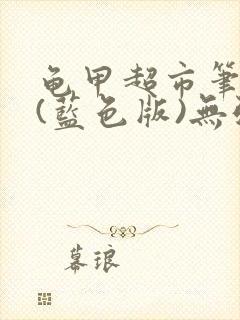 龟甲超市筆
(藍色版)無
幕琅